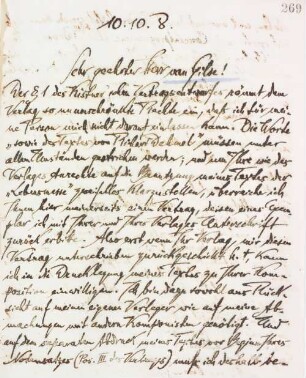 269
10.10.8.
Sehr geehrter Herr van Gilse!
Der § 1 des Kistner'schen Vertragsentwurfes räumt dem
Verlag so unumschränkte Rechte ein, daß ich für mei-
ne Person mich nicht darauf einlassen kann. Die Worte
"sowie des Textes von Richard Dehmel" müssen unter
allen Umständen gestrichen werden; und um Ihre wie des
Verlages Anrechte auf die Benutzung meines Textes der
"Lebensmesse" klarzustellen, überreiche ich
Ihnen hier meinerseits einen Vertrag, dessen eines Exem-
plar ich mit Ihrer und Ihres Verlages Unterschrift
zurück erbitte. Also erst wenn Ihr Verlag mir diesen
Vertrag unterschrieben zurückgeschickt hat, kann
ich in die Drucklegung meines Textes zu Ihrer Kom-
position einwilligen. Ich bin dazu sowohl aus Rück-
sicht auf meinen eigenen Verleger, wie auf meine Ab-
machungen mit andern Komponisten genötigt. Und
auf den separaten Abdruck meines Textes vor Beginn Ihres
Notensatzes (Pos. III des Vertrags) muß ich deshalb be-